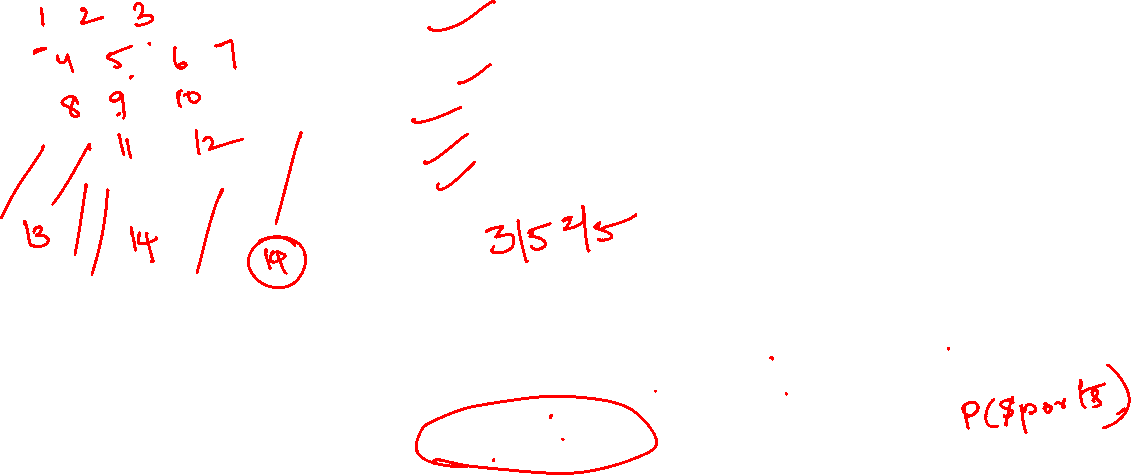 1 2 3
4 5 6 7
8 9 10
11 12
13 14
3/5 2/5
P(Sports)